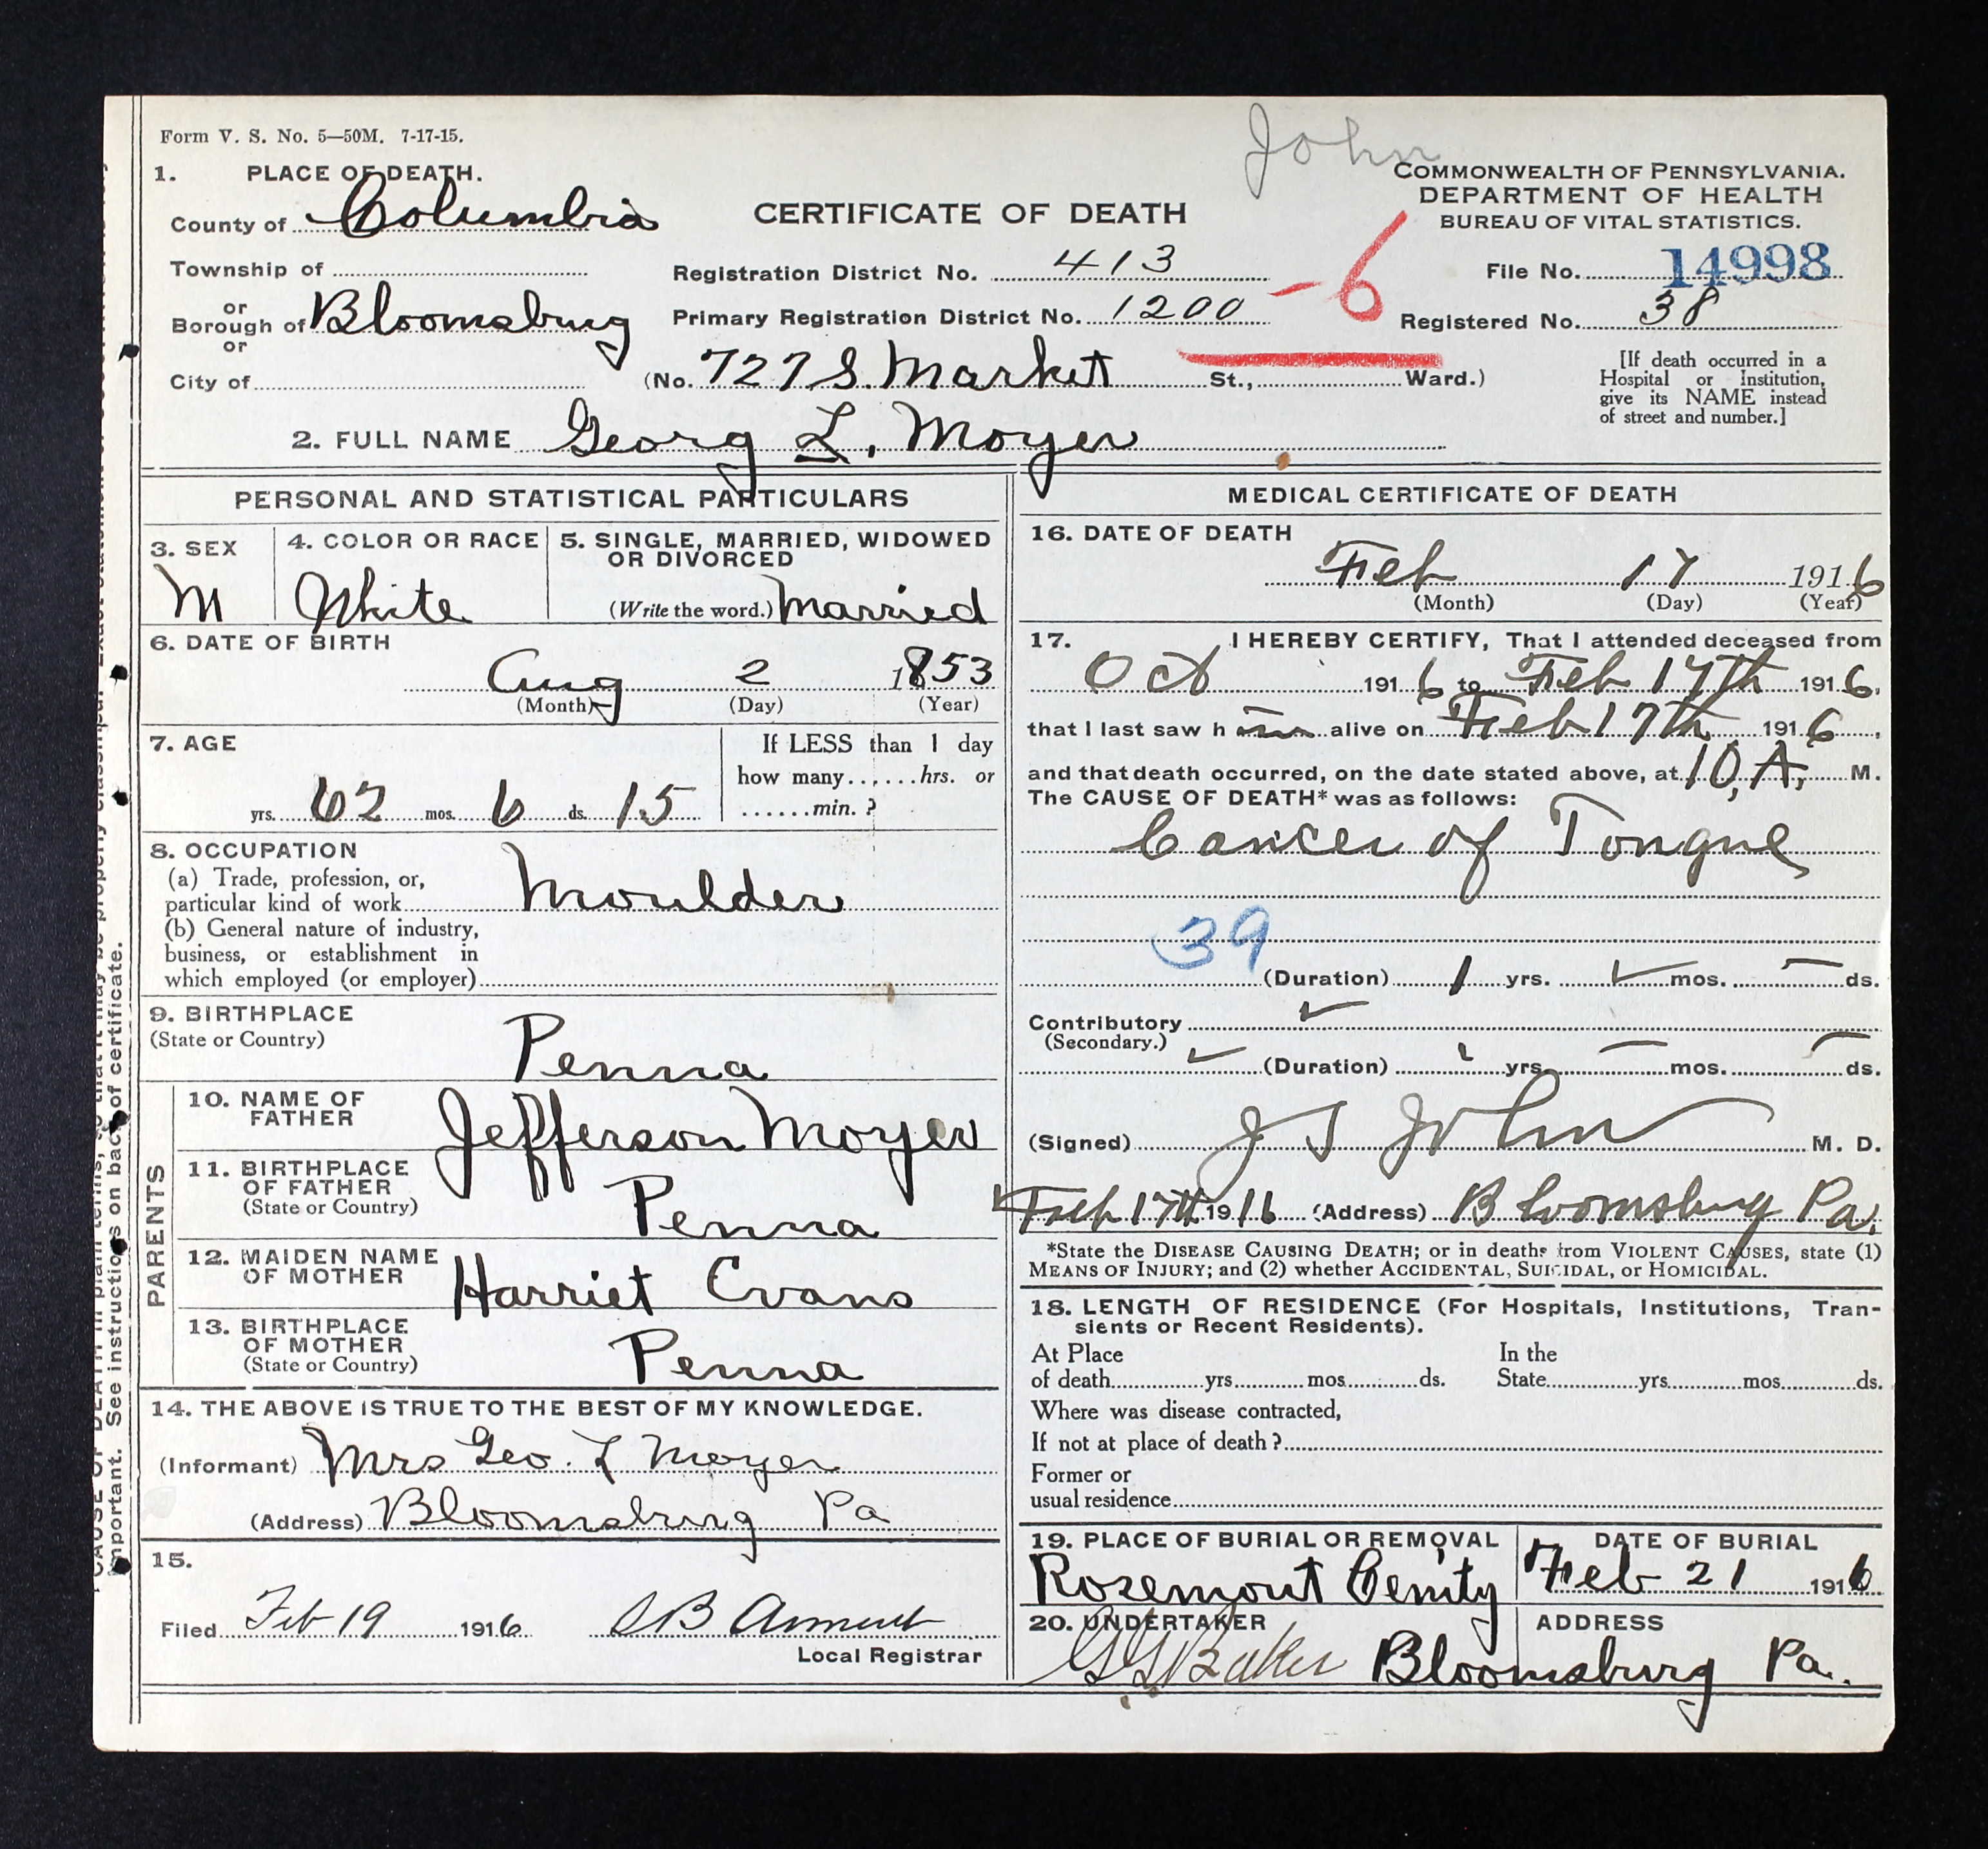 John
Form V. S. No. 5—50M. 7-17-15.
COMMONWEALTH OF PENNSYLVANIA.
DEPARTMENT OF HEALTH
BUREAU OF VITAL STATISTICS.
CERTIFICATE OF DEATH
1. PLACE OF DEATH.
County of Columbia
Township of
or
Borough of Bloomsburg
or
City of
Registration District No. 413
Primary Registration District No. 1200
-6
File No. 14998
Registered No. 38
(No. 727 S. Market St., Ward.)
[If death occurred in a
Hospital or Institution,
give its NAME instead
of street and number.]
2. FULL NAME Georg L. Moyer
PERSONAL AND STATISTICAL PARTICULARS
3. SEX
M
4. COLOR OR RACE
White
5. SINGLE, MARRIED, WIDOWED
OR DIVORCED
(Write the word.) Married
6. DATE OF BIRTH
Aug 2 1853
(Month) (Day) (Year)
7. AGE
yrs. 62 mos. 6 ds. 15
If LESS than 1 day
how many......hrs. or
......min. ?
8. OCCUPATION
(a) Trade, profession, or,
particular kind of work Moulder
(b) General nature of industry,
business, or establishment in
which employed (or employer)
9. BIRTHPLACE
(State or Country)
Penna
PARENTS
10. NAME OF
FATHER
Jefferson Moyer
11. BIRTHPLACE
OF FATHER
(State or Country)
Penna
12. MAIDEN NAME
OF MOTHER
Harriet Evans
13. BIRTHPLACE
OF MOTHER
(State or Country)
Penna
14. THE ABOVE IS TRUE TO THE BEST OF MY KNOWLEDGE.
(Informant) Mrs Geo. L Moyer
(Address) Bloomsburg Pa
15.
Filed Feb 19 1916 S B Arment
Local Registrar
MEDICAL CERTIFICATE OF DEATH
16. DATE OF DEATH
Feb 17 1916
(Month) (Day) (Year)
17. I HEREBY CERTIFY, That I attended deceased from
Oct 1916 to Feb 17th 1916.
that I last saw h im alive on Feb 17th 1916,
and that death occurred, on the date stated above, at 10, A, M.
The CAUSE OF DEATH* was as follows:
Cancer of Tongue
39
(Duration) 1 yrs. ✓ mos. – ds.
Contributory ✓
(Secondary.)
✓ (Duration) yrs. – mos. – ds.
(Signed) J S John M. D.
Feb 17th 1916 (Address) Bloomsburg Pa.
*State the DISEASE CAUSING DEATH; or in deaths from VIOLENT CAUSES, state (1)
MEANS OF INJURY; and (2) whether ACCIDENTAL, SUICIDAL, or HOMICIDAL.
18. LENGTH OF RESIDENCE (For Hospitals, Institutions, Tran-
sients or Recent Residents).
At Place
of death yrs mos ds.
In the
State yrs mos ds.
Where was disease contracted,
If not at place of death ?
Former or
usual residence
19. PLACE OF BURIAL OR REMOVAL
Rosemont Cemty
DATE OF BURIAL
Feb 21 1916
20. UNDERTAKER
Baker
ADDRESS
Bloomsburg Pa.
CAUSE OF DEATH in plain terms, so that it may be properly classified.
important. See instructions on back of certificate.